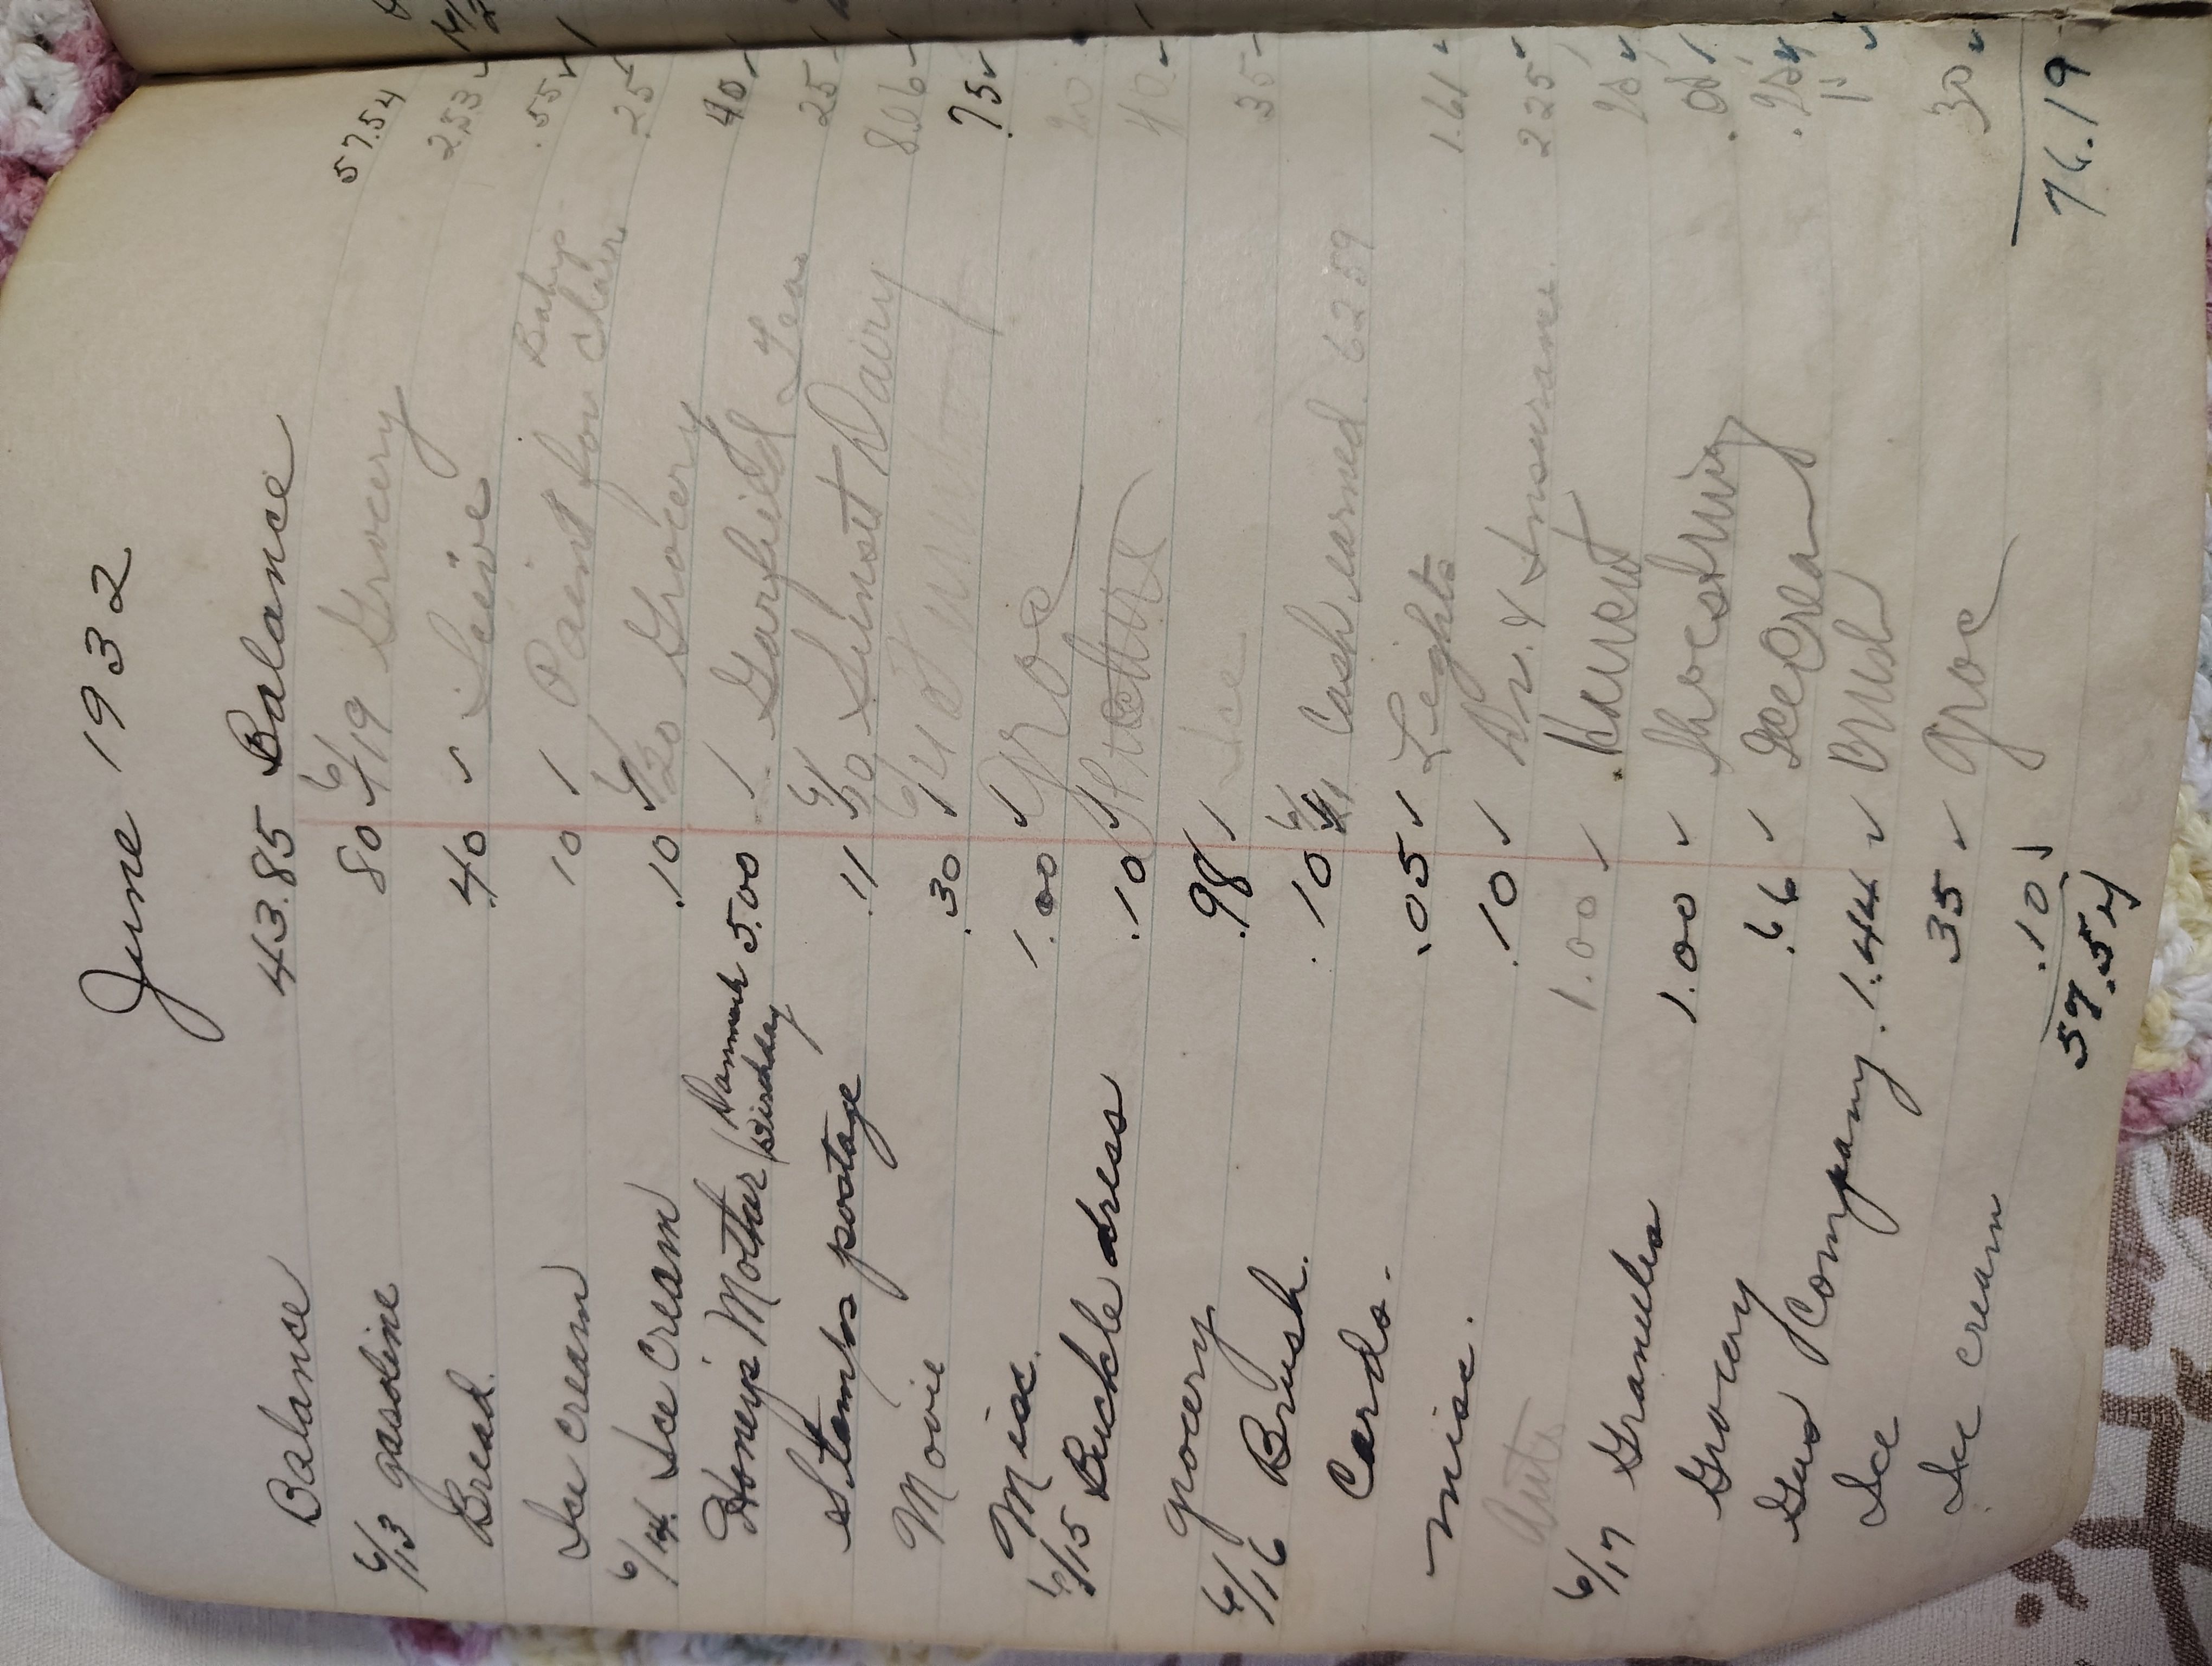 June 1932
Balance 43.85
6/13 gasoline 80
Bread. .40 ✓
Ice cream 10
6/14. Ice Cream .10
Honey's Mother / 5.00
Birthday
Stamps postage .11
Movie .30
Misc. 1.00 ✓
6/15 Buckle dress .10 ✓
grocery .98
6/16 Brush. .10
Cards. .05 ✓
misc. .10 ✓
1.00 ✓
6/17 Granules 1.00 ✓
Grocery .66 ✓
Gas Company. 1.44 ✓
Ice 35 ✓
Ice cream .10 ✓
57.54
Balance 57.54
6/19 Grocery 2.53 ✓
Seive .55 ✓
Paint for Baby's 25 ✓
Chair
6/20 Grocery 40 ✓
Garfield Tea 25
6/20 Sunset Dairy 8.06
75 ✓
Groc 20
40
Ice 35
Cash earned 62.59
Lights 1.61 ✓
Dr. & Insurance 2.25 ✓
Shoestring
Ice Cream
Brush 15 ✓
Groc 30 ✓
76.19